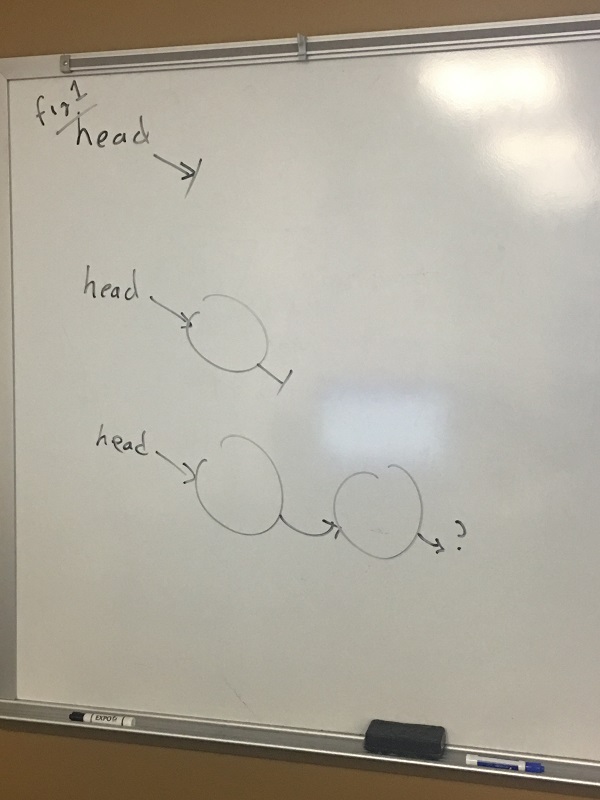 fig 1
head
head
head
?
EXPO